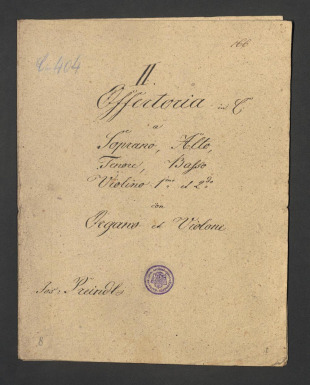 166
C-404
II.
Offertoria in C
a
Soprano, Alto,
Tenore, Basso
Violino 1mo et 2do
con
Organo et Violone
Jos: Preindl
8